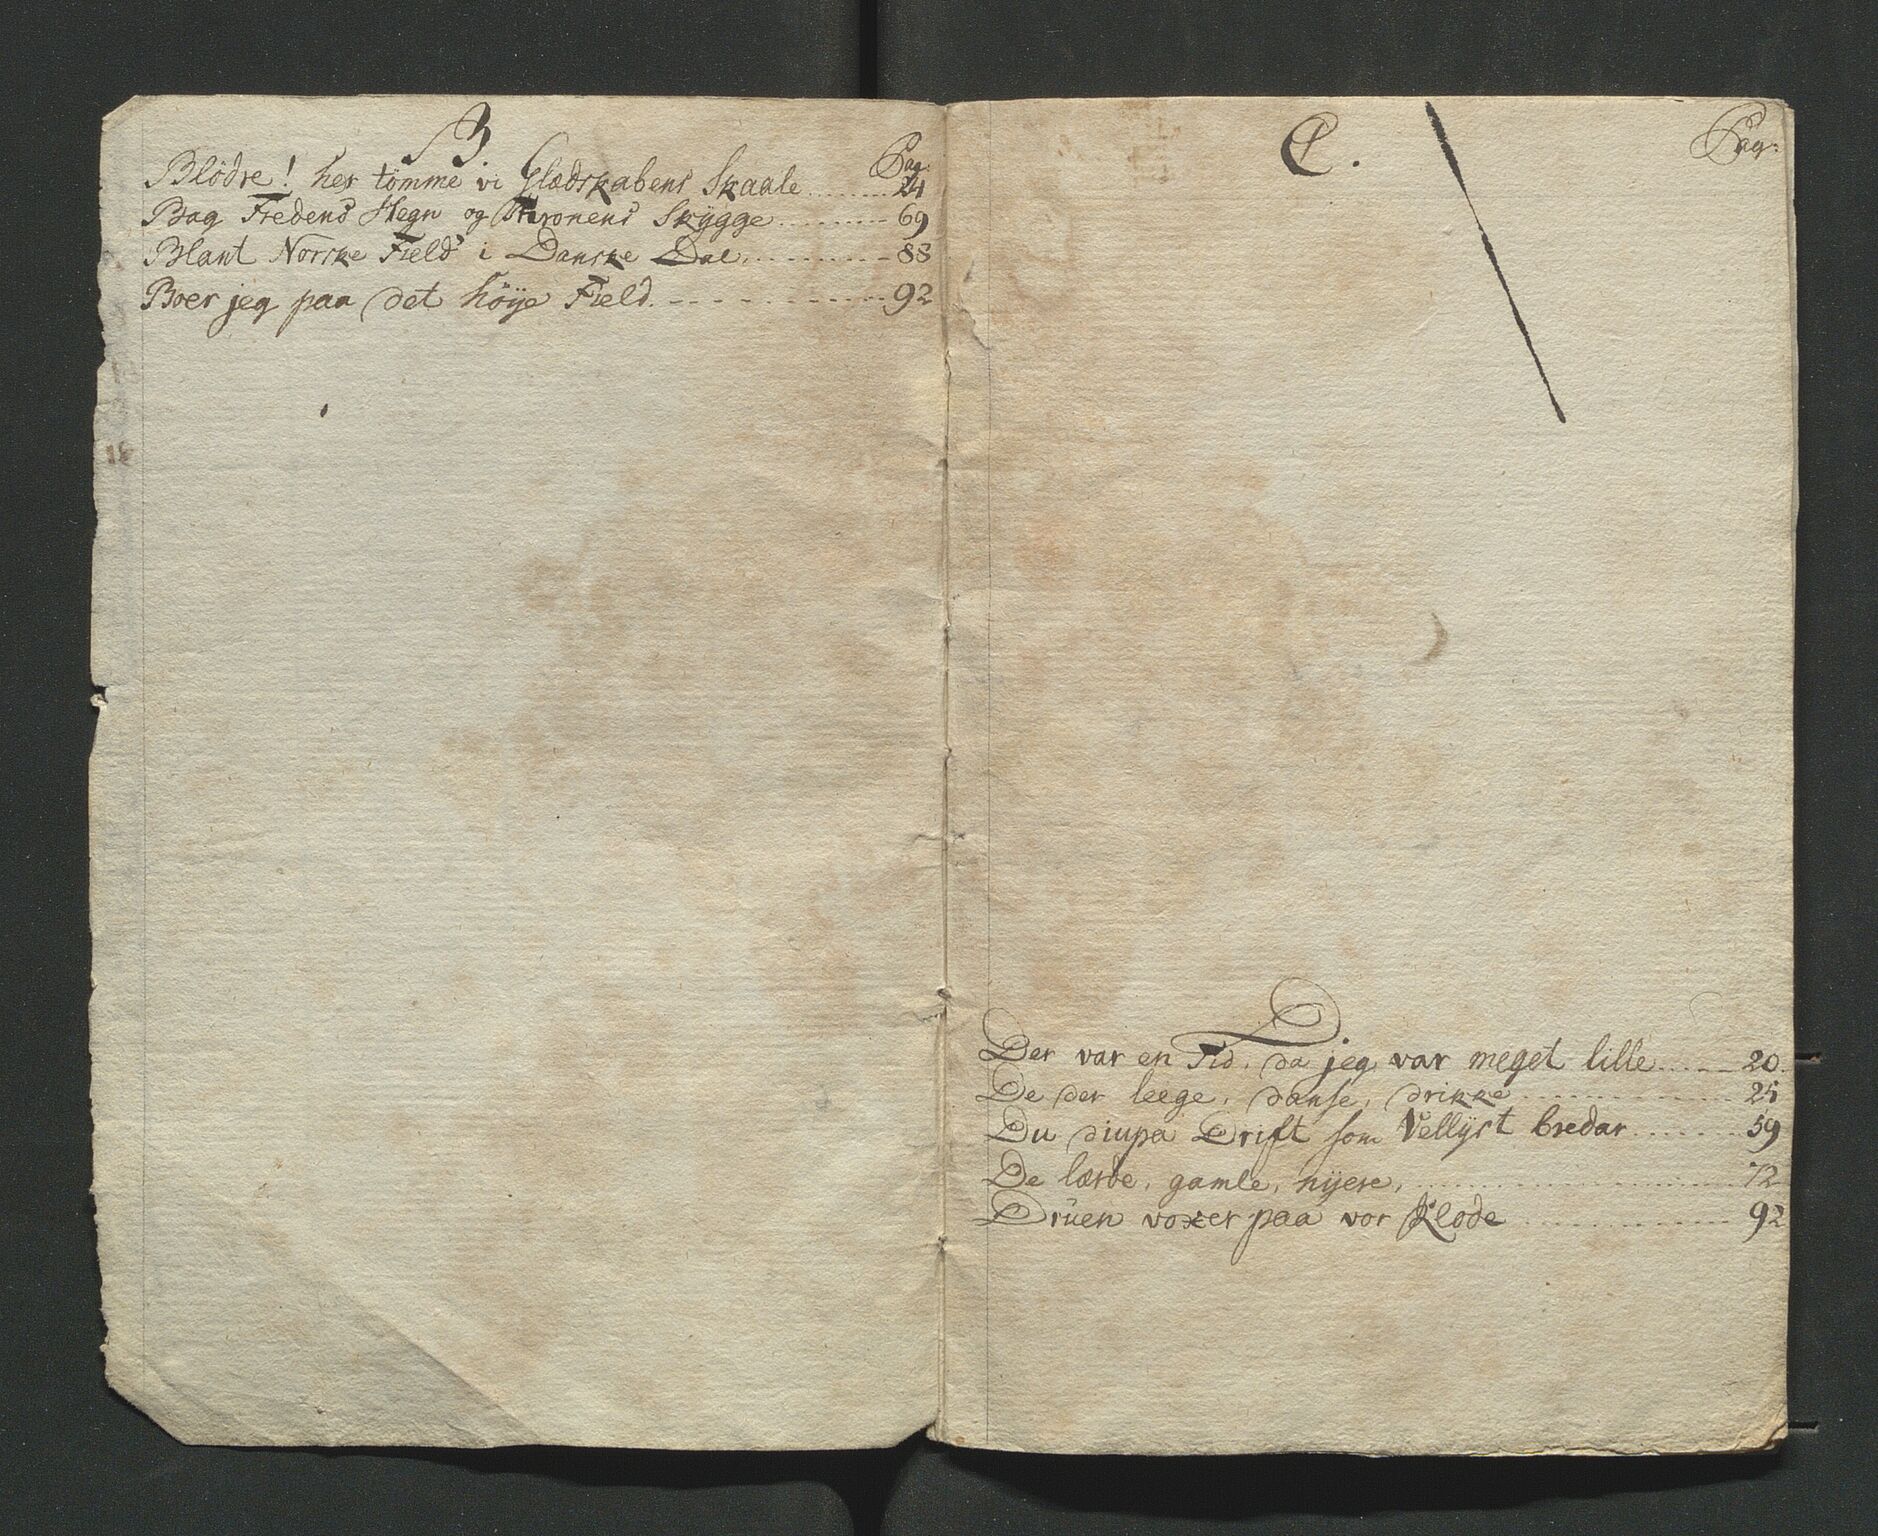 B
Pag:
Blödre! her tömme vi Glædskabens Skaale ........ 24
Bag Fredens Hegn og Thronens Skÿgge ........ 69
Blant Norske Field i Danske Dal. ........ 88
Boer jeg paa det höÿe Field. ........ 92
C.
Pag:
D
Der var en Tid, da jeg var meget lille ........ 20.
De der leege, danse, drikke ........ 25
Du diupa Drift som Vellÿst bredar ........ 59
De lærde, gamle, nÿere, ........ 72
Drüen voxer paa vor Klode ........ 92